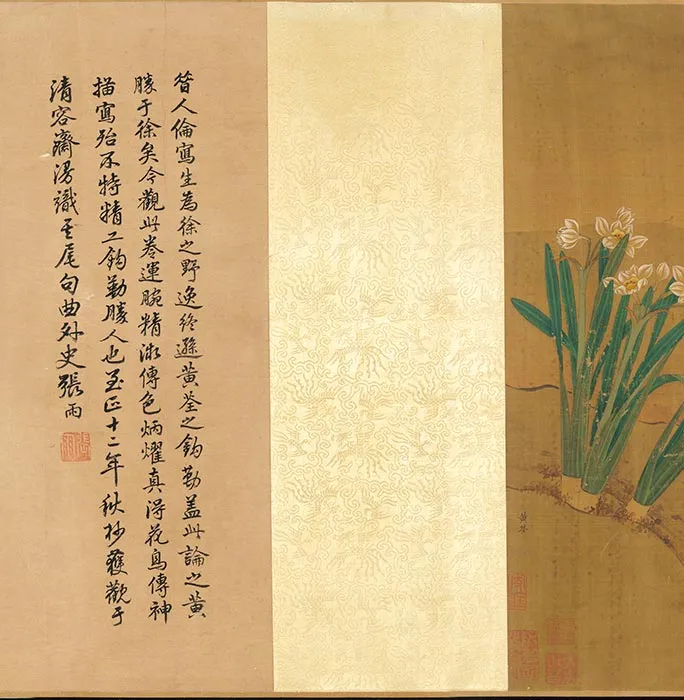 昔人倫寫生為徐之野逸終遜黃荃之鈎勒蓋此論之黃
勝于徐矣今觀此卷運腕精微傳色炳燿真得花鳥傳神
描寫殆不特精工鈎勒勝人也至正十二年秋杪獲觀于
清容齋漫識其尾句曲外史張雨
黃荃